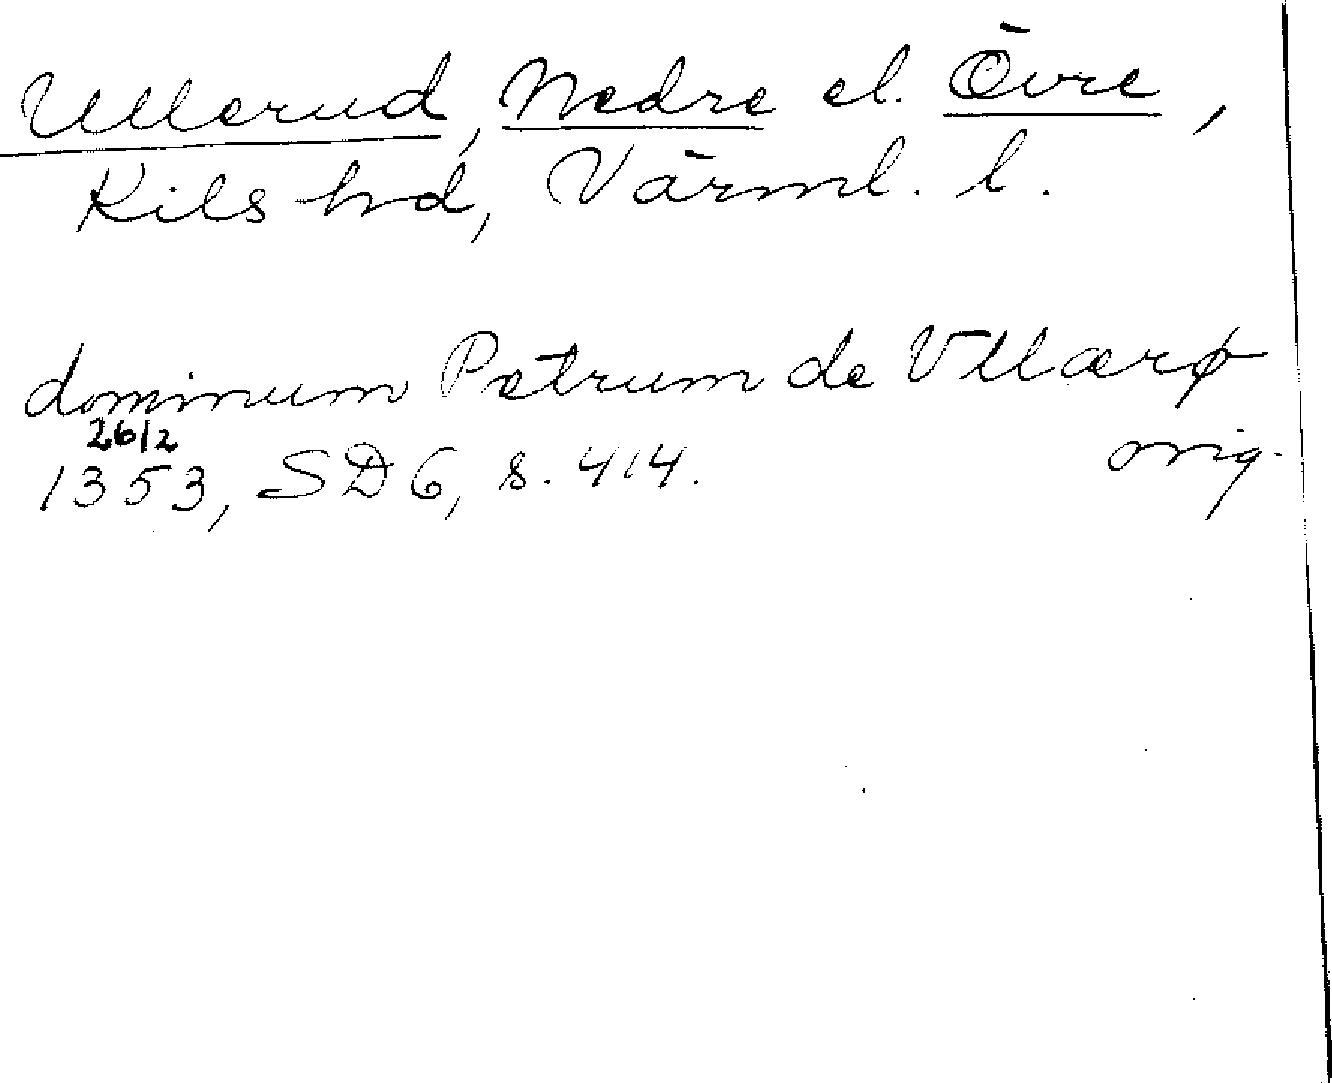 Ullerud, Nedre el. Övre,
Kils hd, Värml. l.
dominum Petrum de Vllærø
26/2
1353, SD 6, s. 414. orig.